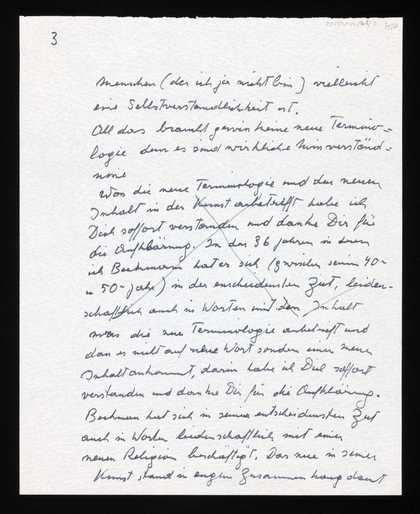 3
Menschen (der ich ja nicht bin) vielleicht
eine Selbstverständlichkeit ist.
All das braucht gewiss keine neue Termino-
logie denn es sind wirkliche Missverständ-
nisse
Was die neue Terminologie und den neuen
Inhalt in der Kunst anbetrifft habe ich
Dich sofort verstanden und danke Dir für
die Aufklärung. In den 36 Jahren in denen
ich Beckmann hat er sich (zwischen seinem 40-
u 50- Jahr) in der entscheidensten Zeit, leiden-
schaftlich auch in Worten mit dem Inhalt
Was die neue Terminologie anbetrifft und
dass es nicht auf neue Wort sondern einen neuen
Inhalt ankommt, darin habe ich Dich sofort
verstanden und danke Dir für die Aufklärung.
Beckmann hat sich in seiner entscheidensten Zeit
auch in Worten leidenschaftlich mit einer
neuen Religion beschäftigt. Das nun in seiner
Kunst stand in engem Zusammenhang damit